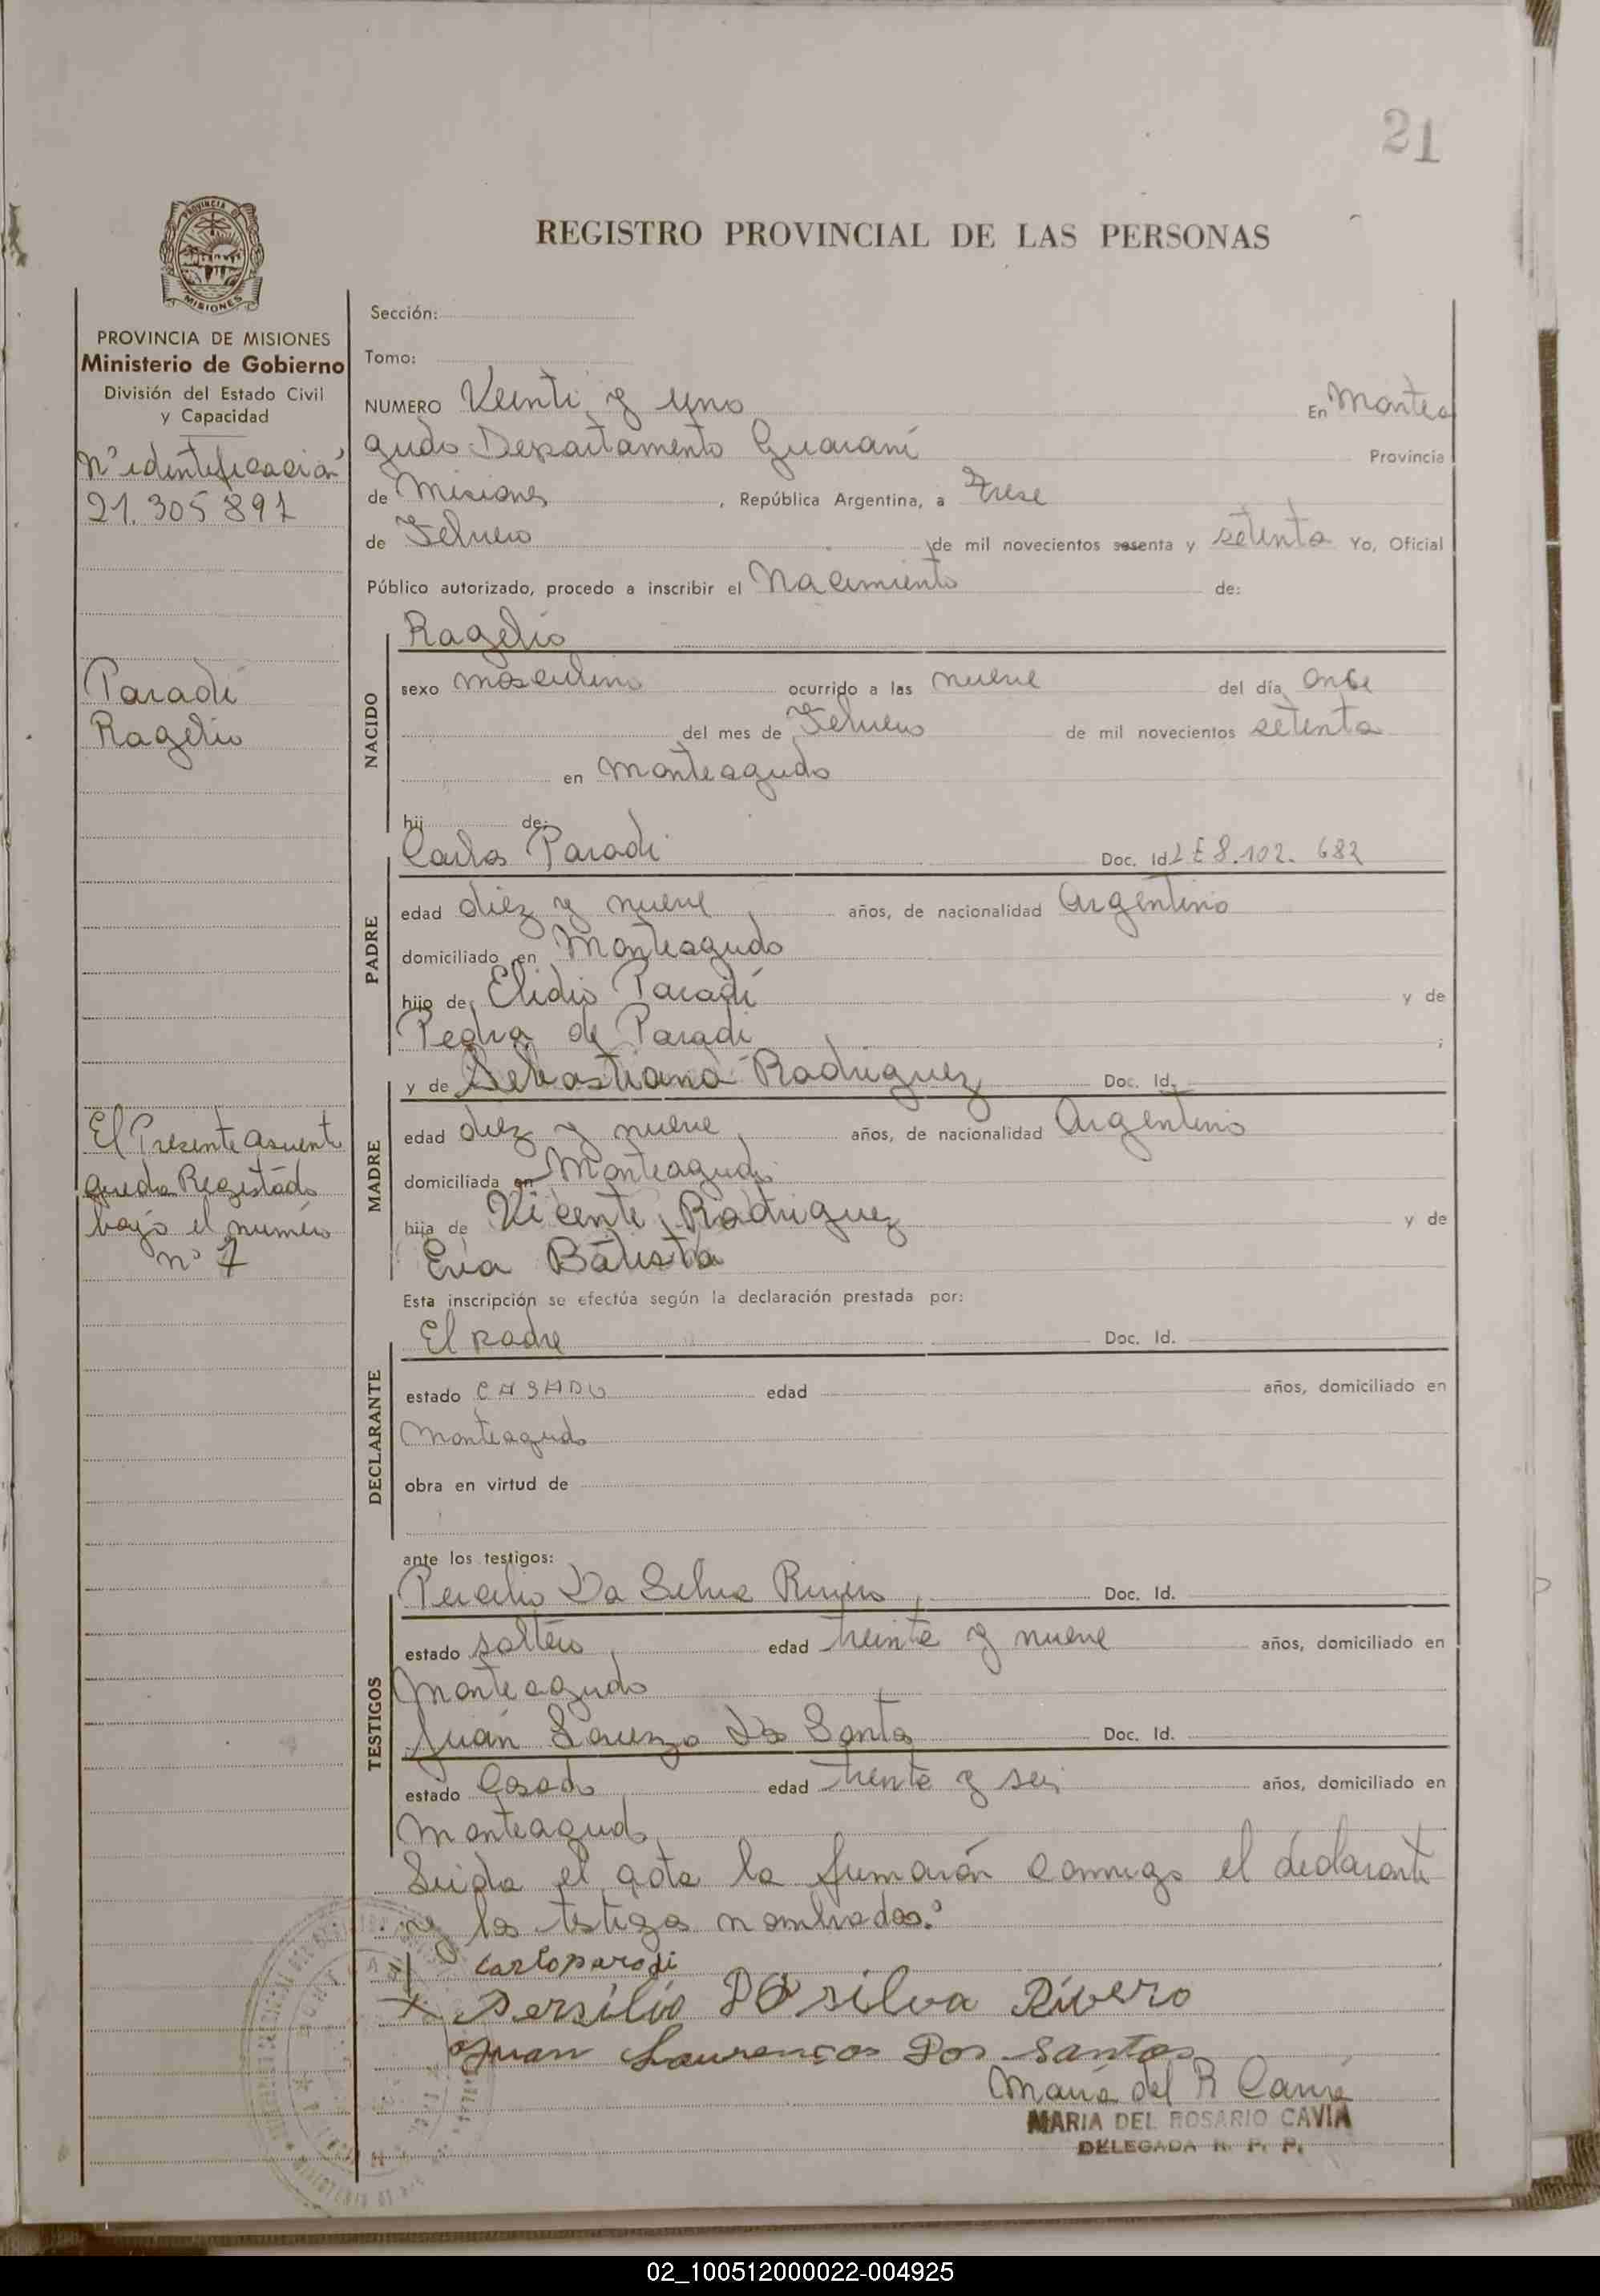 21
REGISTRO PROVINCIAL DE LAS PERSONAS
PROVINCIA DE
MISIONES
PROVINCIA DE MISIONES
Ministerio de Gobierno
División del Estado Civil
y Capacidad
Nº identificación
21.305891
Paradi
Ragelio
El Presente asuento
queda Registado
bajo el numéro
nº 7
Sección:
Tomo:
NUMERO Veinti y uno En Montea
gudo Departamento Guaraní Provincia
de Misiones, República Argentina, a Trese
de Febrero de mil novecientos sesenta y setenta Yo, Oficial
Público autorizado, procedo a inscribir el Nacimiento de:
NACIDO
Ragelio
sexo masculino ocurrido a las nueve del día onse
del mes de Febrero de mil novecientos setenta
en Monteagudo
hij de:
PADRE
Carlos Paradi Doc. Id. L E 8.102.682
edad diez y nueve, años, de nacionalidad Argentino
domiciliado en Monteagudo
hijo de Elidio Paradí y de
Pedra de Paradi ;
MADRE
y de Sebastiana Rodriguez Doc. Id.
edad diez y nueve, años, de nacionalidad Argentino
domiciliada en Monteagudo
hija de Vicente Rodriguez y de
Eva Batista
Esta inscripción se efectúa según la declaración prestada por:
DECLARANTE
El padre Doc. Id.
estado CASADO edad años, domiciliado en
Monteagudo
obra en virtud de
ante los testigos:
TESTIGOS
Percilio Da Selva Rivero, Doc. Id.
estado soltero, edad treinta y nueve años, domiciliado en
Monteagudo
Juán Lorenzo Do Santos Doc. Id.
estado Casado edad trenta y sei años, domiciliado en
Monteagudo
Leida el acta la fumarón conmigo el declarante
y los testigos nombrados.
carloparodi
Persilio DA silva Rivero
Juan Laurenços Dos Santos
María del R Cavia
MARIA DEL ROSARIO CAVIA
DELEGADA R. P. P.
02_100512000022-004925